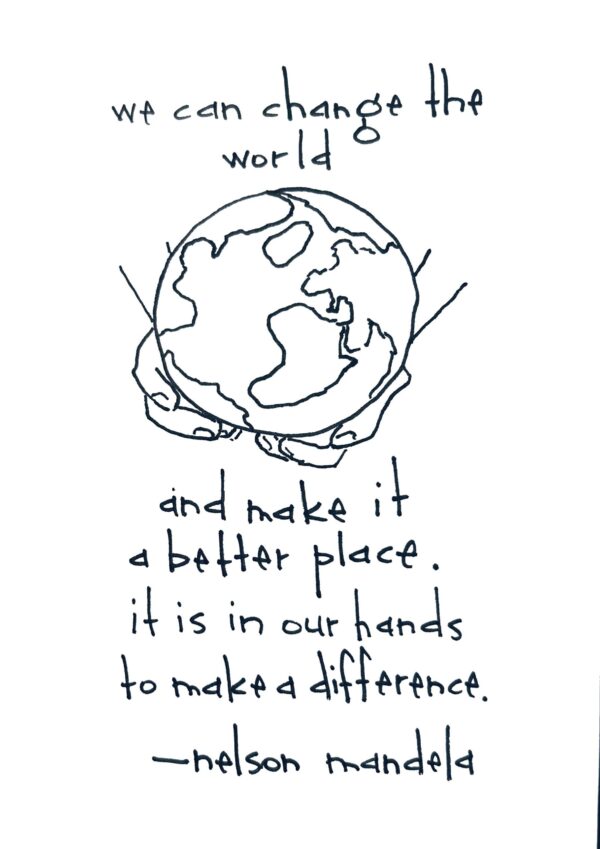 we can change the
world
and make it
a better place.
it is in our hands
to make a difference.
—nelson mandela